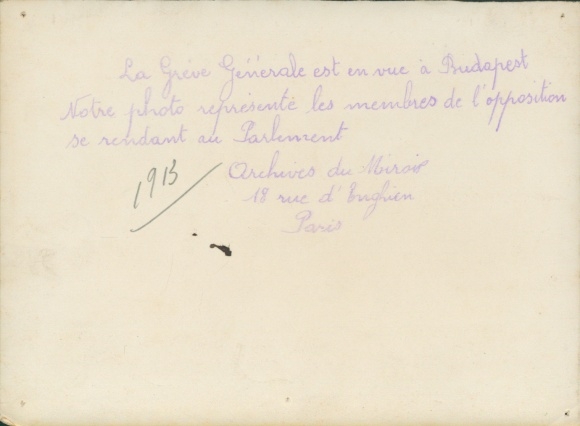 La Grève Générale est en vue à Budapest
Notre photo représente les membres de l'opposition
se rendant au Parlement
1913
Archives du Miroir
18 rue d'Enghien
Paris